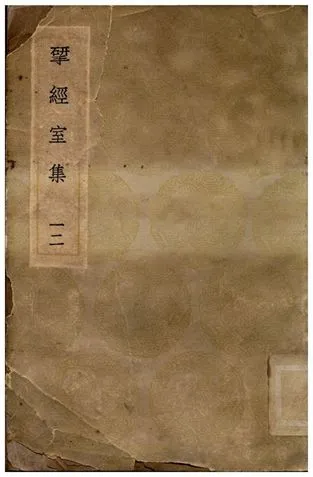 揅經室集 一二